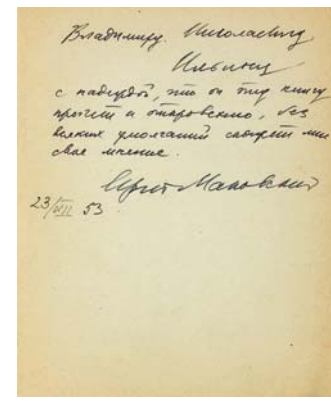 Владимиру Николаевичу
Ильину
с надеждой, что он эту книгу
прочтет и откровенно, без
всяких умолчаний сообщит мне
свое мнение.
Сергей Маковский
23/VII 53